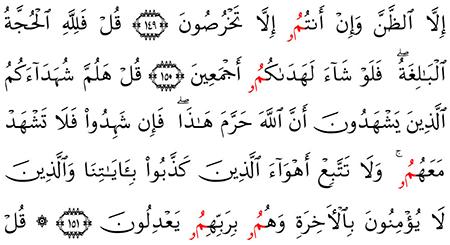 إِلَّا ٱلظَّنَّ وَإِنْ أَنتُمُۥ إِلَّا تَخْرُصُونَ ١٤٩ قُلْ فَلِلَّهِ ٱلْحُجَّةُ
ٱلْبَـٰلِغَةُ ۖ فَلَوْ شَآءَ لَهَدَىٰكُمُۥ أَجْمَعِينَ ١٥٠ قُلْ هَلُمَّ شُهَدَآءَكُمُ
ٱلَّذِينَ يَشْهَدُونَ أَنَّ ٱللَّهَ حَرَّمَ هَـٰذَا ۖ فَإِن شَهِدُوا۟ فَلَا تَشْهَدْ
مَعَهُمُۥ ۚ وَلَا تَتَّبِعْ أَهْوَآءَ ٱلَّذِينَ كَذَّبُوا۟ بِـَٔايَـٰتِنَا وَٱلَّذِينَ
لَا يُؤْمِنُونَ بِٱلْـَٔاخِرَةِ وَهُمُۥ بِرَبِّهِمُۥ يَعْدِلُونَ ١٥١ ۞ قُلْ